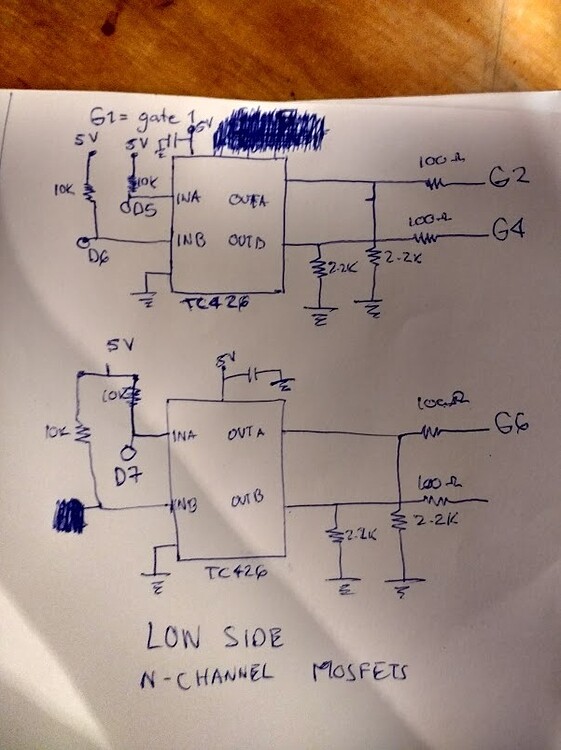 G1 = gate 1
5V
5V
5V
10K
10K
D5
D6
INA
OUTA
INB
OUTB
TC426
100Ω
G2
100Ω
G4
2.2K
2.2K
5V
5V
10K
10K
D7
INA
OUTA
INB
OUTB
TC426
100Ω
G6
100Ω
2.2K
2.2K
LOW SIDE
N-CHANNEL MOSFETS